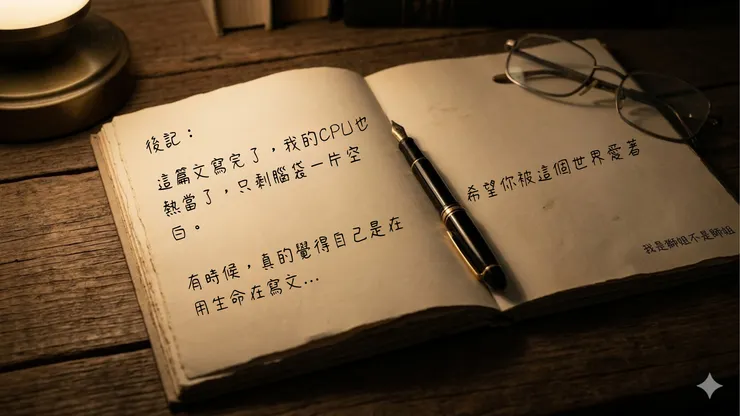 後記：
這篇文寫完了，我的CPU也
熱當了，只剩腦袋一片空
白。
有時候，真的覺得自己是在
用生命在寫文...
希望你被這個世界愛著
我是獅姐不是師姐